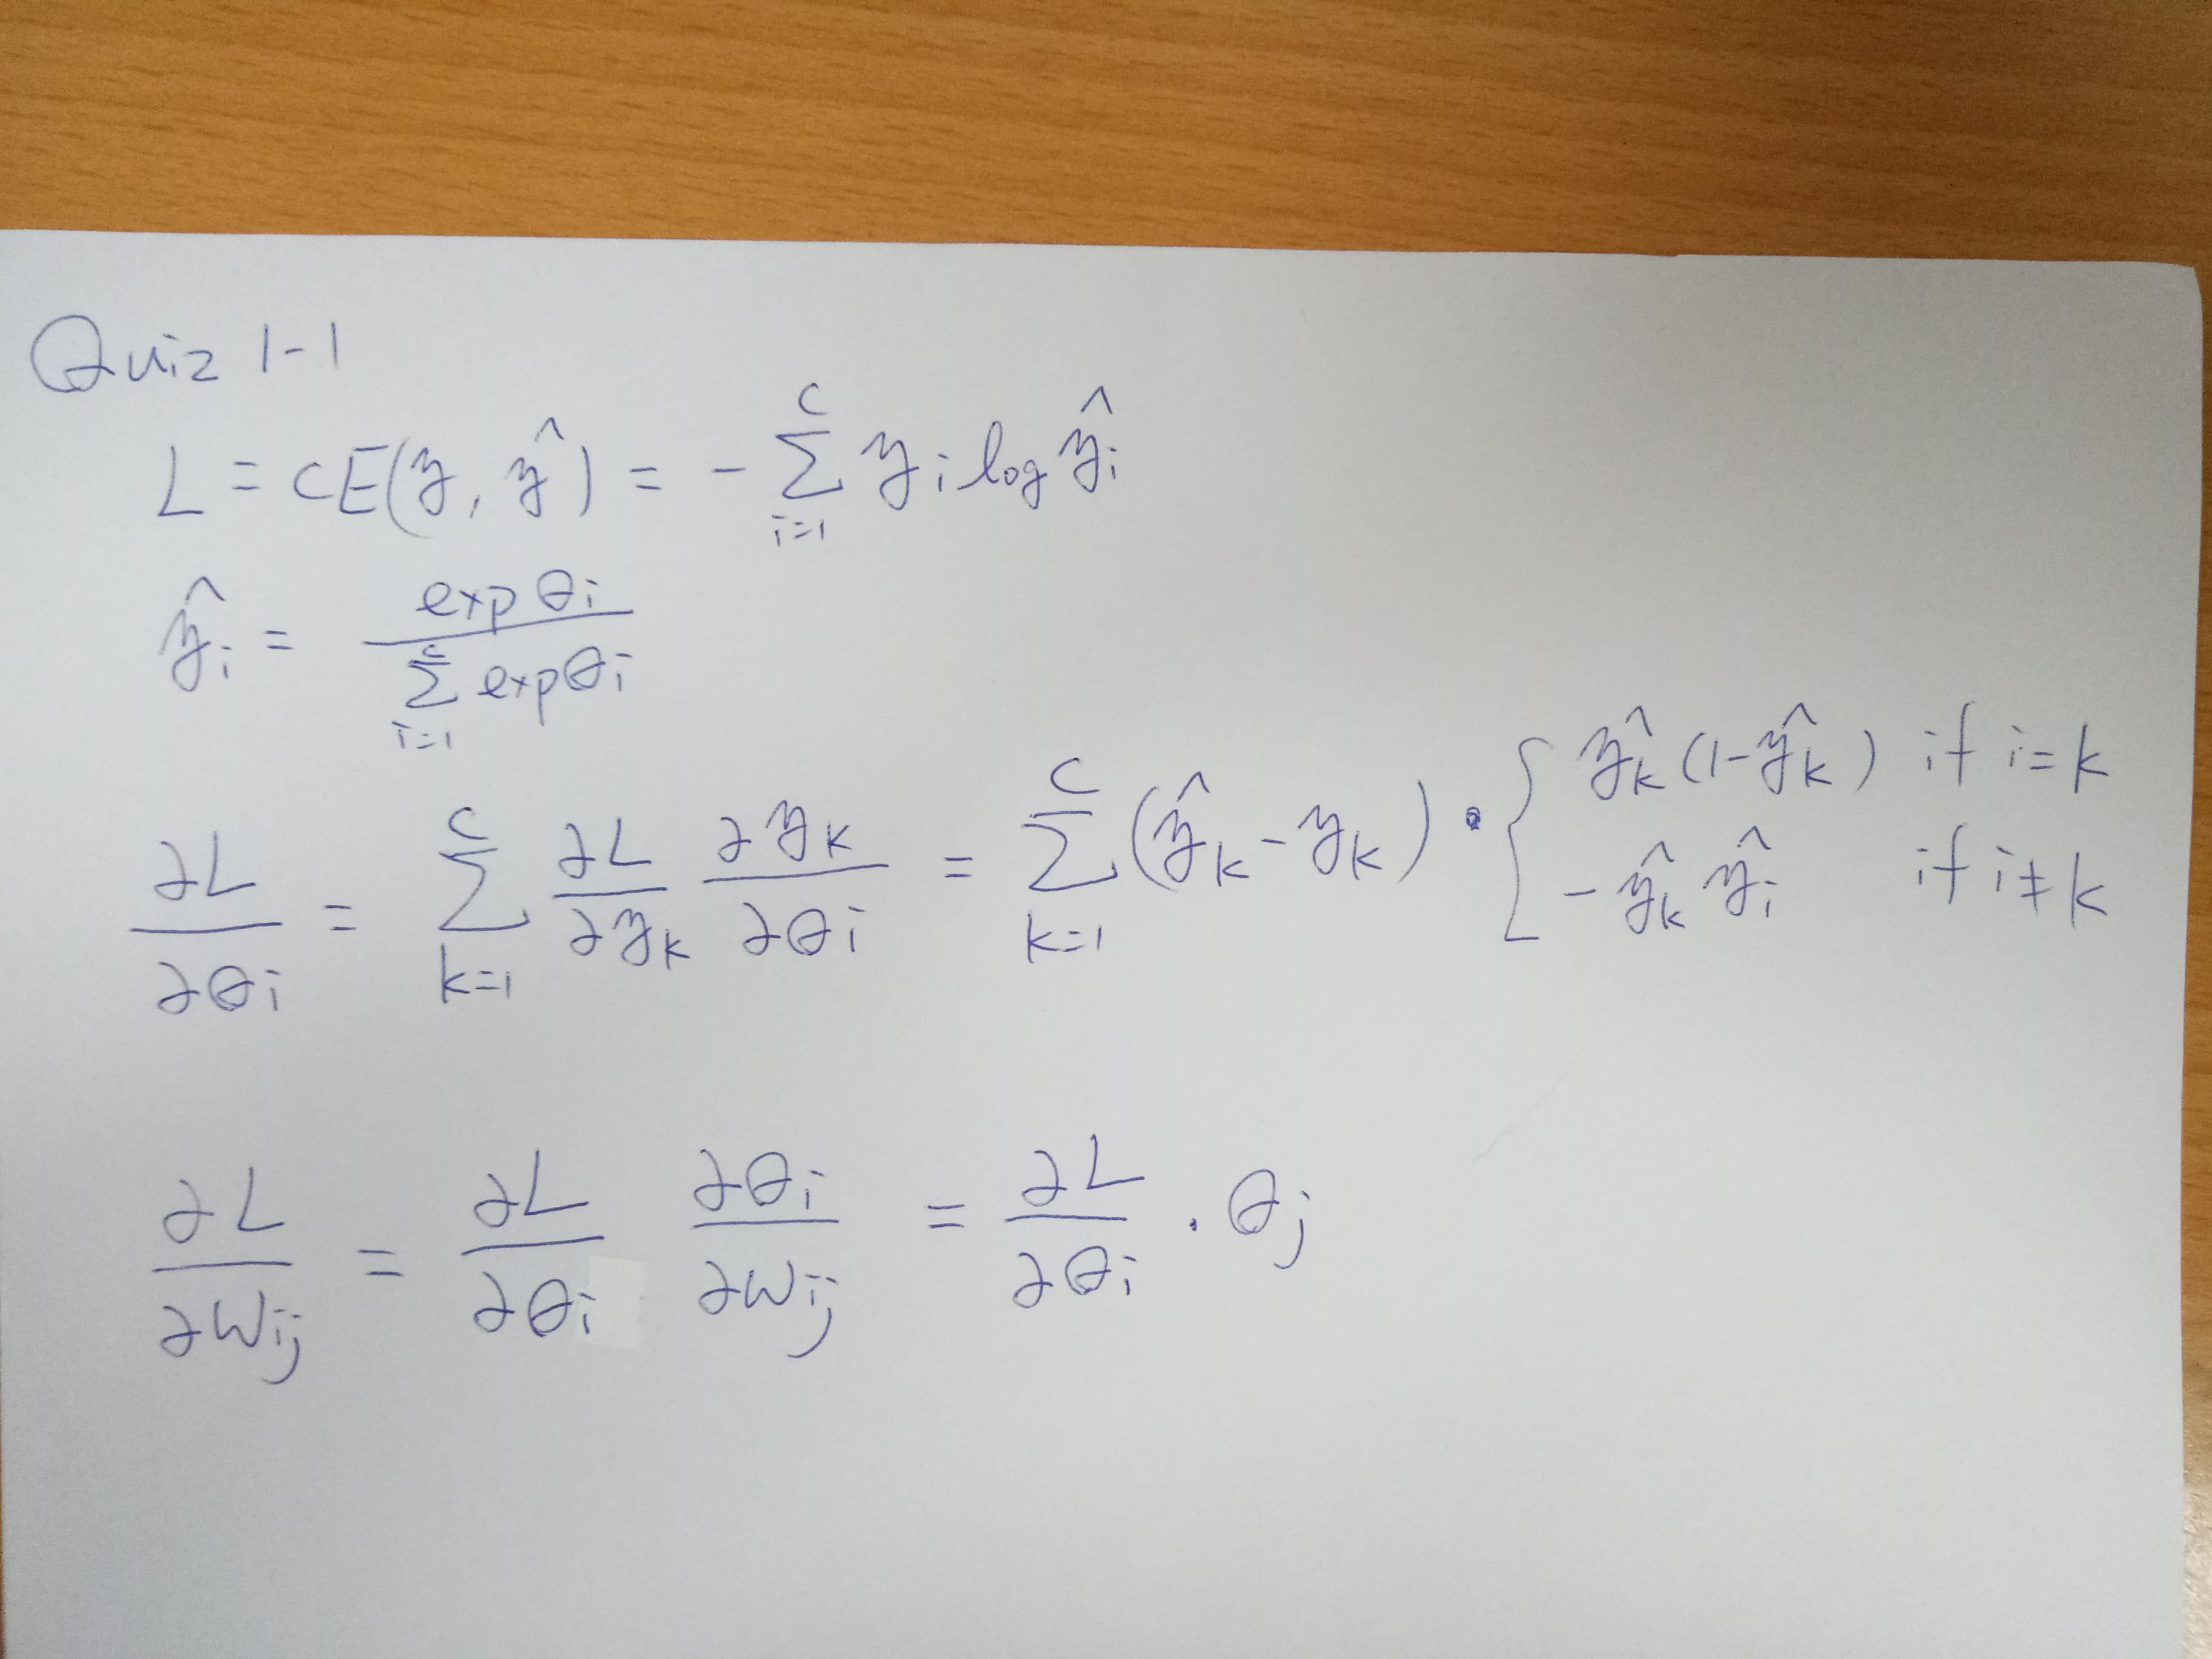 Quiz 1-1
L = CE(y, ŷ) = - Σ_{i=1}^{C} y_i log ŷ_i
ŷ_i = exp θ_i / Σ_{i=1}^{C} exp θ_i
∂L/∂θ_i = Σ_{k=1}^{C} ∂L/∂y_k ∂y_k/∂θ_i = Σ_{k=1}^{C} (ŷ_k - y_k) · { ŷ_k (1-ŷ_k) if i=k
-ŷ_k ŷ_i if i≠k
∂L/∂w_ij = ∂L/∂θ_i ∂θ_i/∂w_ij = ∂L/∂θ_i · θ_j